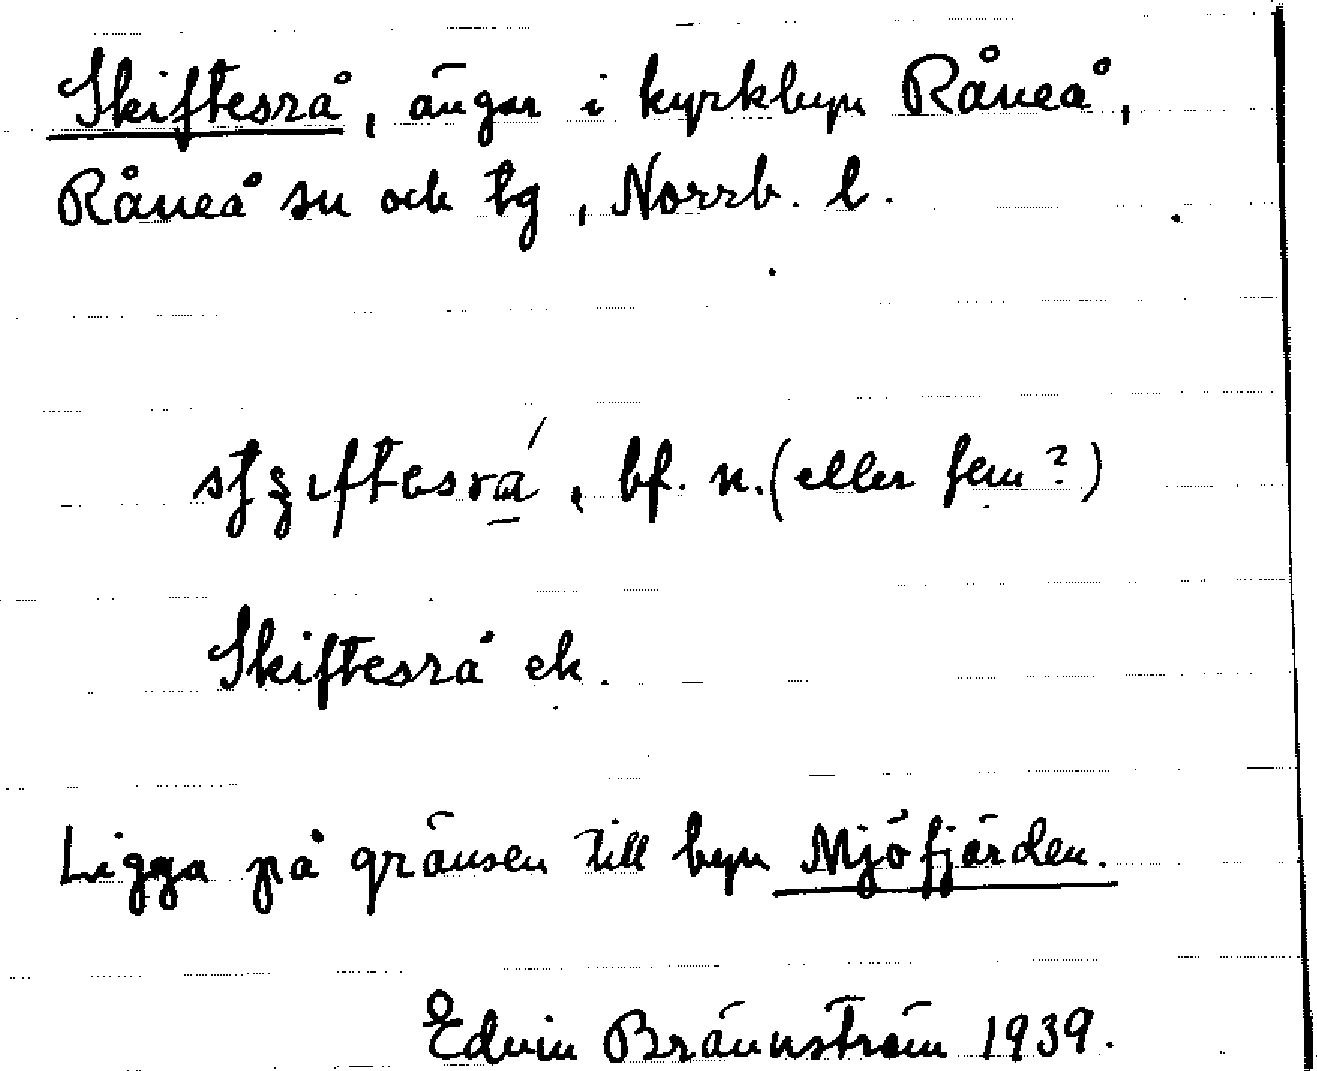 Skiftesrå, ängar i kyrkbyn Råneå,
Råneå sn och tg, Norrb. l.
bf. n. (eller fem?)
Skiftesrå ek.
Ligga på gränsen till byn Mjöfjärden.
Edvin Brännström 1939.